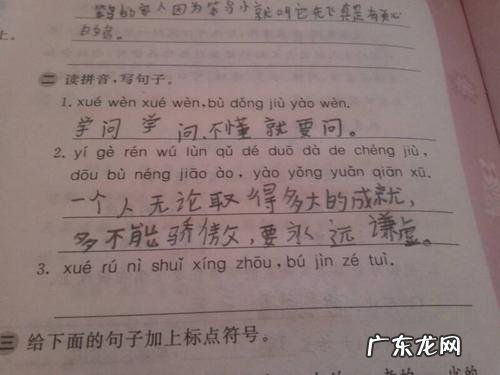 白名。
上。
二 读拼音，写句子。
1. xué wèn xué wèn, bù dǒng jiù yào wèn.
学问学问，不懂就要问。
2. yí gè rén wú lùn qǔ dé duō dà de chéng jiù,
dōu bù néng jiāo ào, yào yǒng yuǎn qiān xū.
一个人无论取得多大的成就，
多不能骄傲，要永远谦虚。
3. xué rú nì shuǐ xíng zhōu, bú jìn zé tuì.
三 给下面的句子加上标点符号。
广东龙网